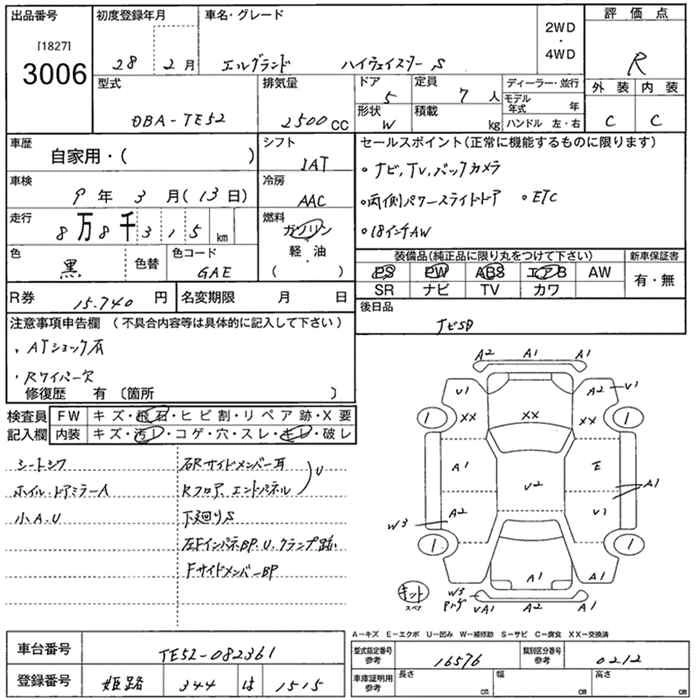 出品番号
[1827]
3006
初度登録年月
28 2月
車名・グレード
エルグランド ハイウェイスター S
2WD
・
4WD
評価点
R
外装 内装
C C
型式
DBA-TE52
排気量
2500CC
ドア
5
定員
7人
形状
W
積載
kg
ディーラー・並行
モデル年式 年
ハンドル 左・右
車歴
自家用・( )
シフト
IAT
車検
9年3月(13日)
冷房
AAC
走行
8万8千315km
燃料
ガソリン
軽・油
( ・ )
色
黒
色替
色コード
GAE
R券
15.740円
名変期限 月 日
セールスポイント(正常に機能するものに限ります)
・ナビ,TV,バックカメラ
・両側パワースライドドア ・ETC
・18インチAW
装備品(純正品に限り丸をつけて下さい)
PS PW ABS エアB AW
SR ナビ TV カワ
新車保証書
有・無
後日品
ナビSD
注意事項申告欄(不具合内容等は具体的に記入して下さい)
・ATショック有
・Rワイパー欠
修復歴 有〔箇所 〕
検査員記入欄
FW キズ・飛石・ヒビ割・リペア跡・X要
内装 キズ・汚レ・コゲ・穴・スレ・キレ・破レ
シートシワ
ホイル・ドアミラーA
小A.U
右Rサイドメンバー耳
Rフロア、エンドパネル U
下廻りS
左FインパネBP.U.クランプ跡.
FサイドメンバーBP
A2 A1 A1
U1 A2 U1
XX XX XX
1 1
A1 E
U2 A1
A2 U1
W3
1 1
A1 A1
キット
スペア
W3
UA1 A2 A1
A−キズ E−エクボ U−凹み W−補修跡 S−サビ C−腐食 XX−交換済
車台番号
TE52-082361
登録番号
姫路 344 は 1515
型式指定番号
参考
16576
類別区分番号
参考
0212
車庫証明用
参考
長さ cm
幅 cm
高さ cm